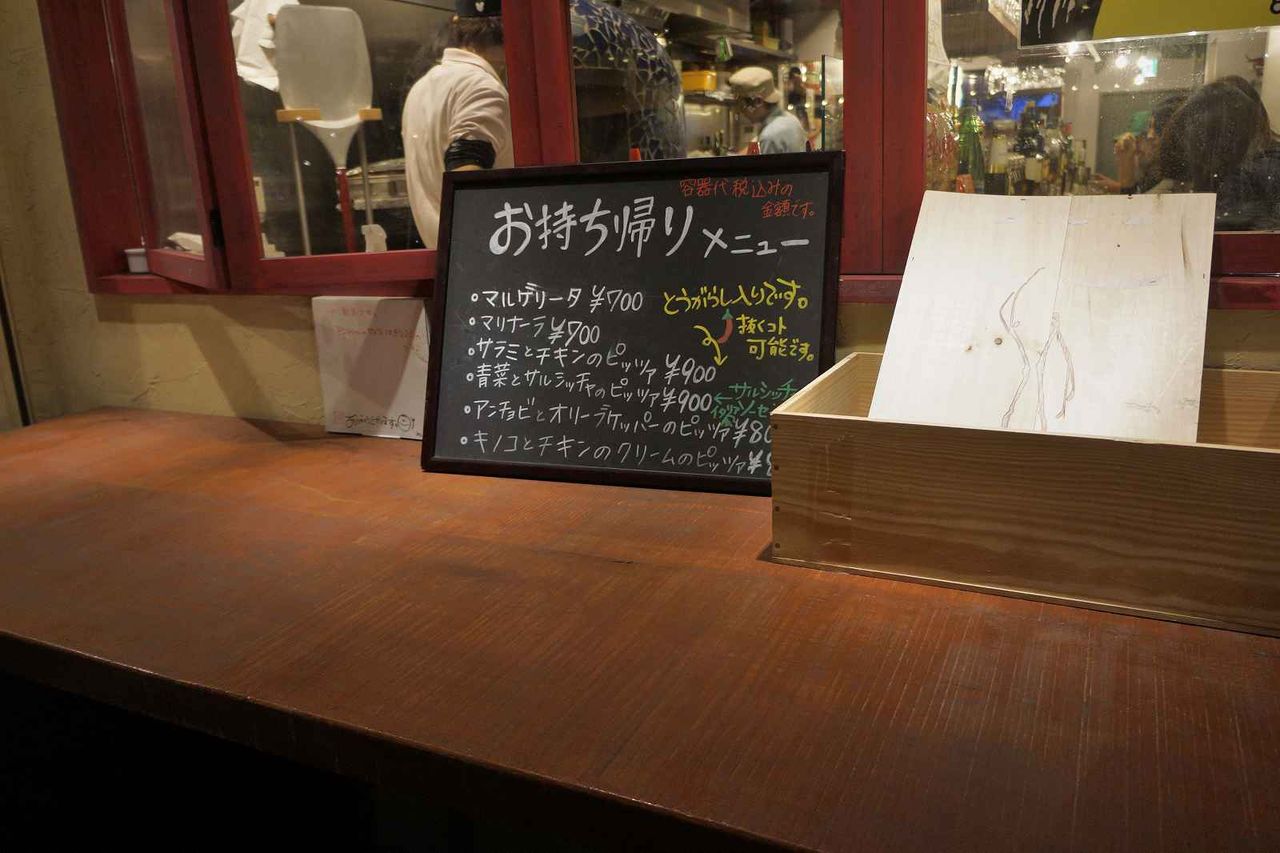 容器代税込みの
金額です。
お持ち帰りメニュー
・マルゲリータ ¥700
・マリナーラ ¥700
・サラミとチキンのピッツァ ¥900
・青菜とサルシッチャのピッツァ ¥900
・アンチョビとオリーブケッパーのピッツァ ¥80
・キノコとチキンのクリームのピッツァ ¥
とうがらし入りです。
抜くコト
可能です。
←サルシッチ
イタリアソーセー